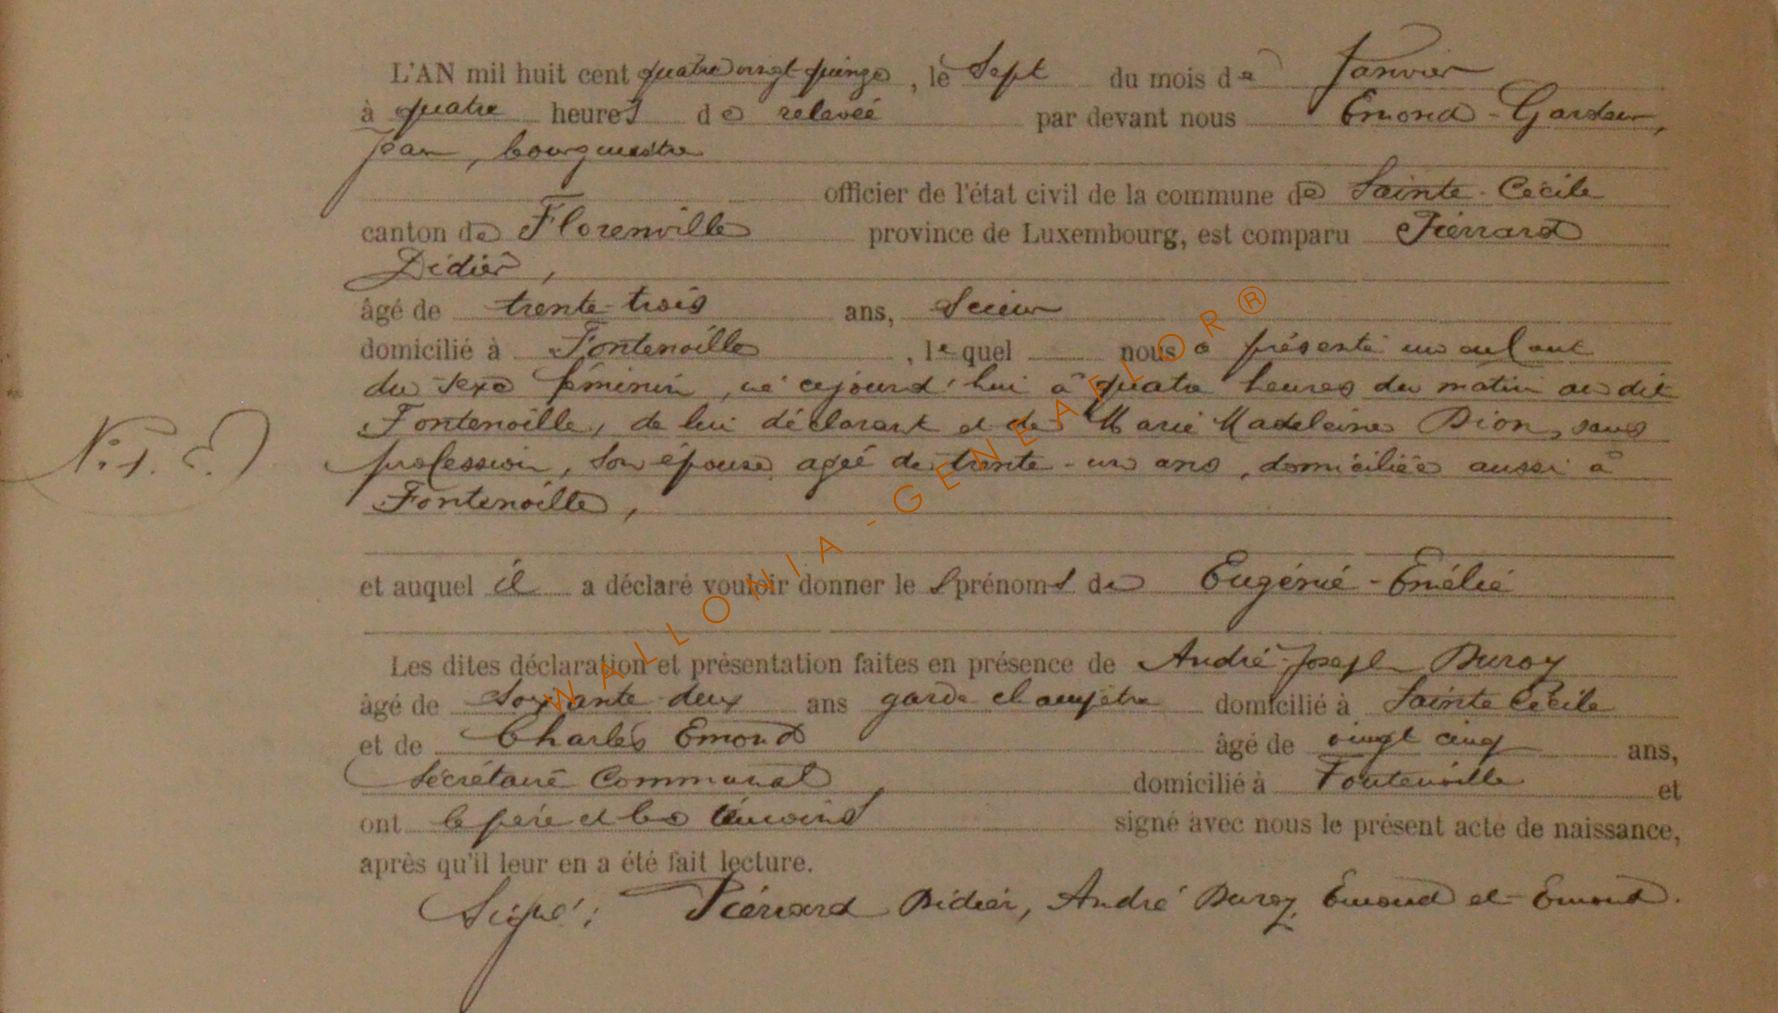 L'AN mil huit cent quatre vingt quinze, le Sept du mois de Janvier
à quatre heures de relevée par devant nous Emond-Gardeur,
Jean, bourgmestre
officier de l'état civil de la commune de Sainte-Cécile
canton de Florenville province de Luxembourg, est comparu Piérrard
Didier,
âgé de trente-trois ans, Scieur
domicilié à Fontenoille, lequel nous a présenté un enfant
du sexe féminin, né cejourd'hui à quatre heures du matin au dit
Fontenoille, de lui déclarant et de Marie Madeleine Dion, sans
N. 1. E.
profession, son épouse, agée de trente-un ans, domiciliée aussi à
Fontenoille,
et auquel il a déclaré vouloir donner le S prénoms de Eugénie-Emélie
Les dites déclaration et présentation faites en présence de André-Joseph Duroy
âgé de Soixante deux ans garde champêtre domicilié à Sainte Cécile
et de Charles Emond âgé de vingt cinq ans,
Secrétaire Communal, domicilié à Fontenoille et
ont le père et les témoins signé avec nous le présent acte de naissance,
après qu'il leur en a été fait lecture.
Signé: Piérrard Didier, André Duroy, Emond et Emond.
WALLONIA-GENEAFLOR®